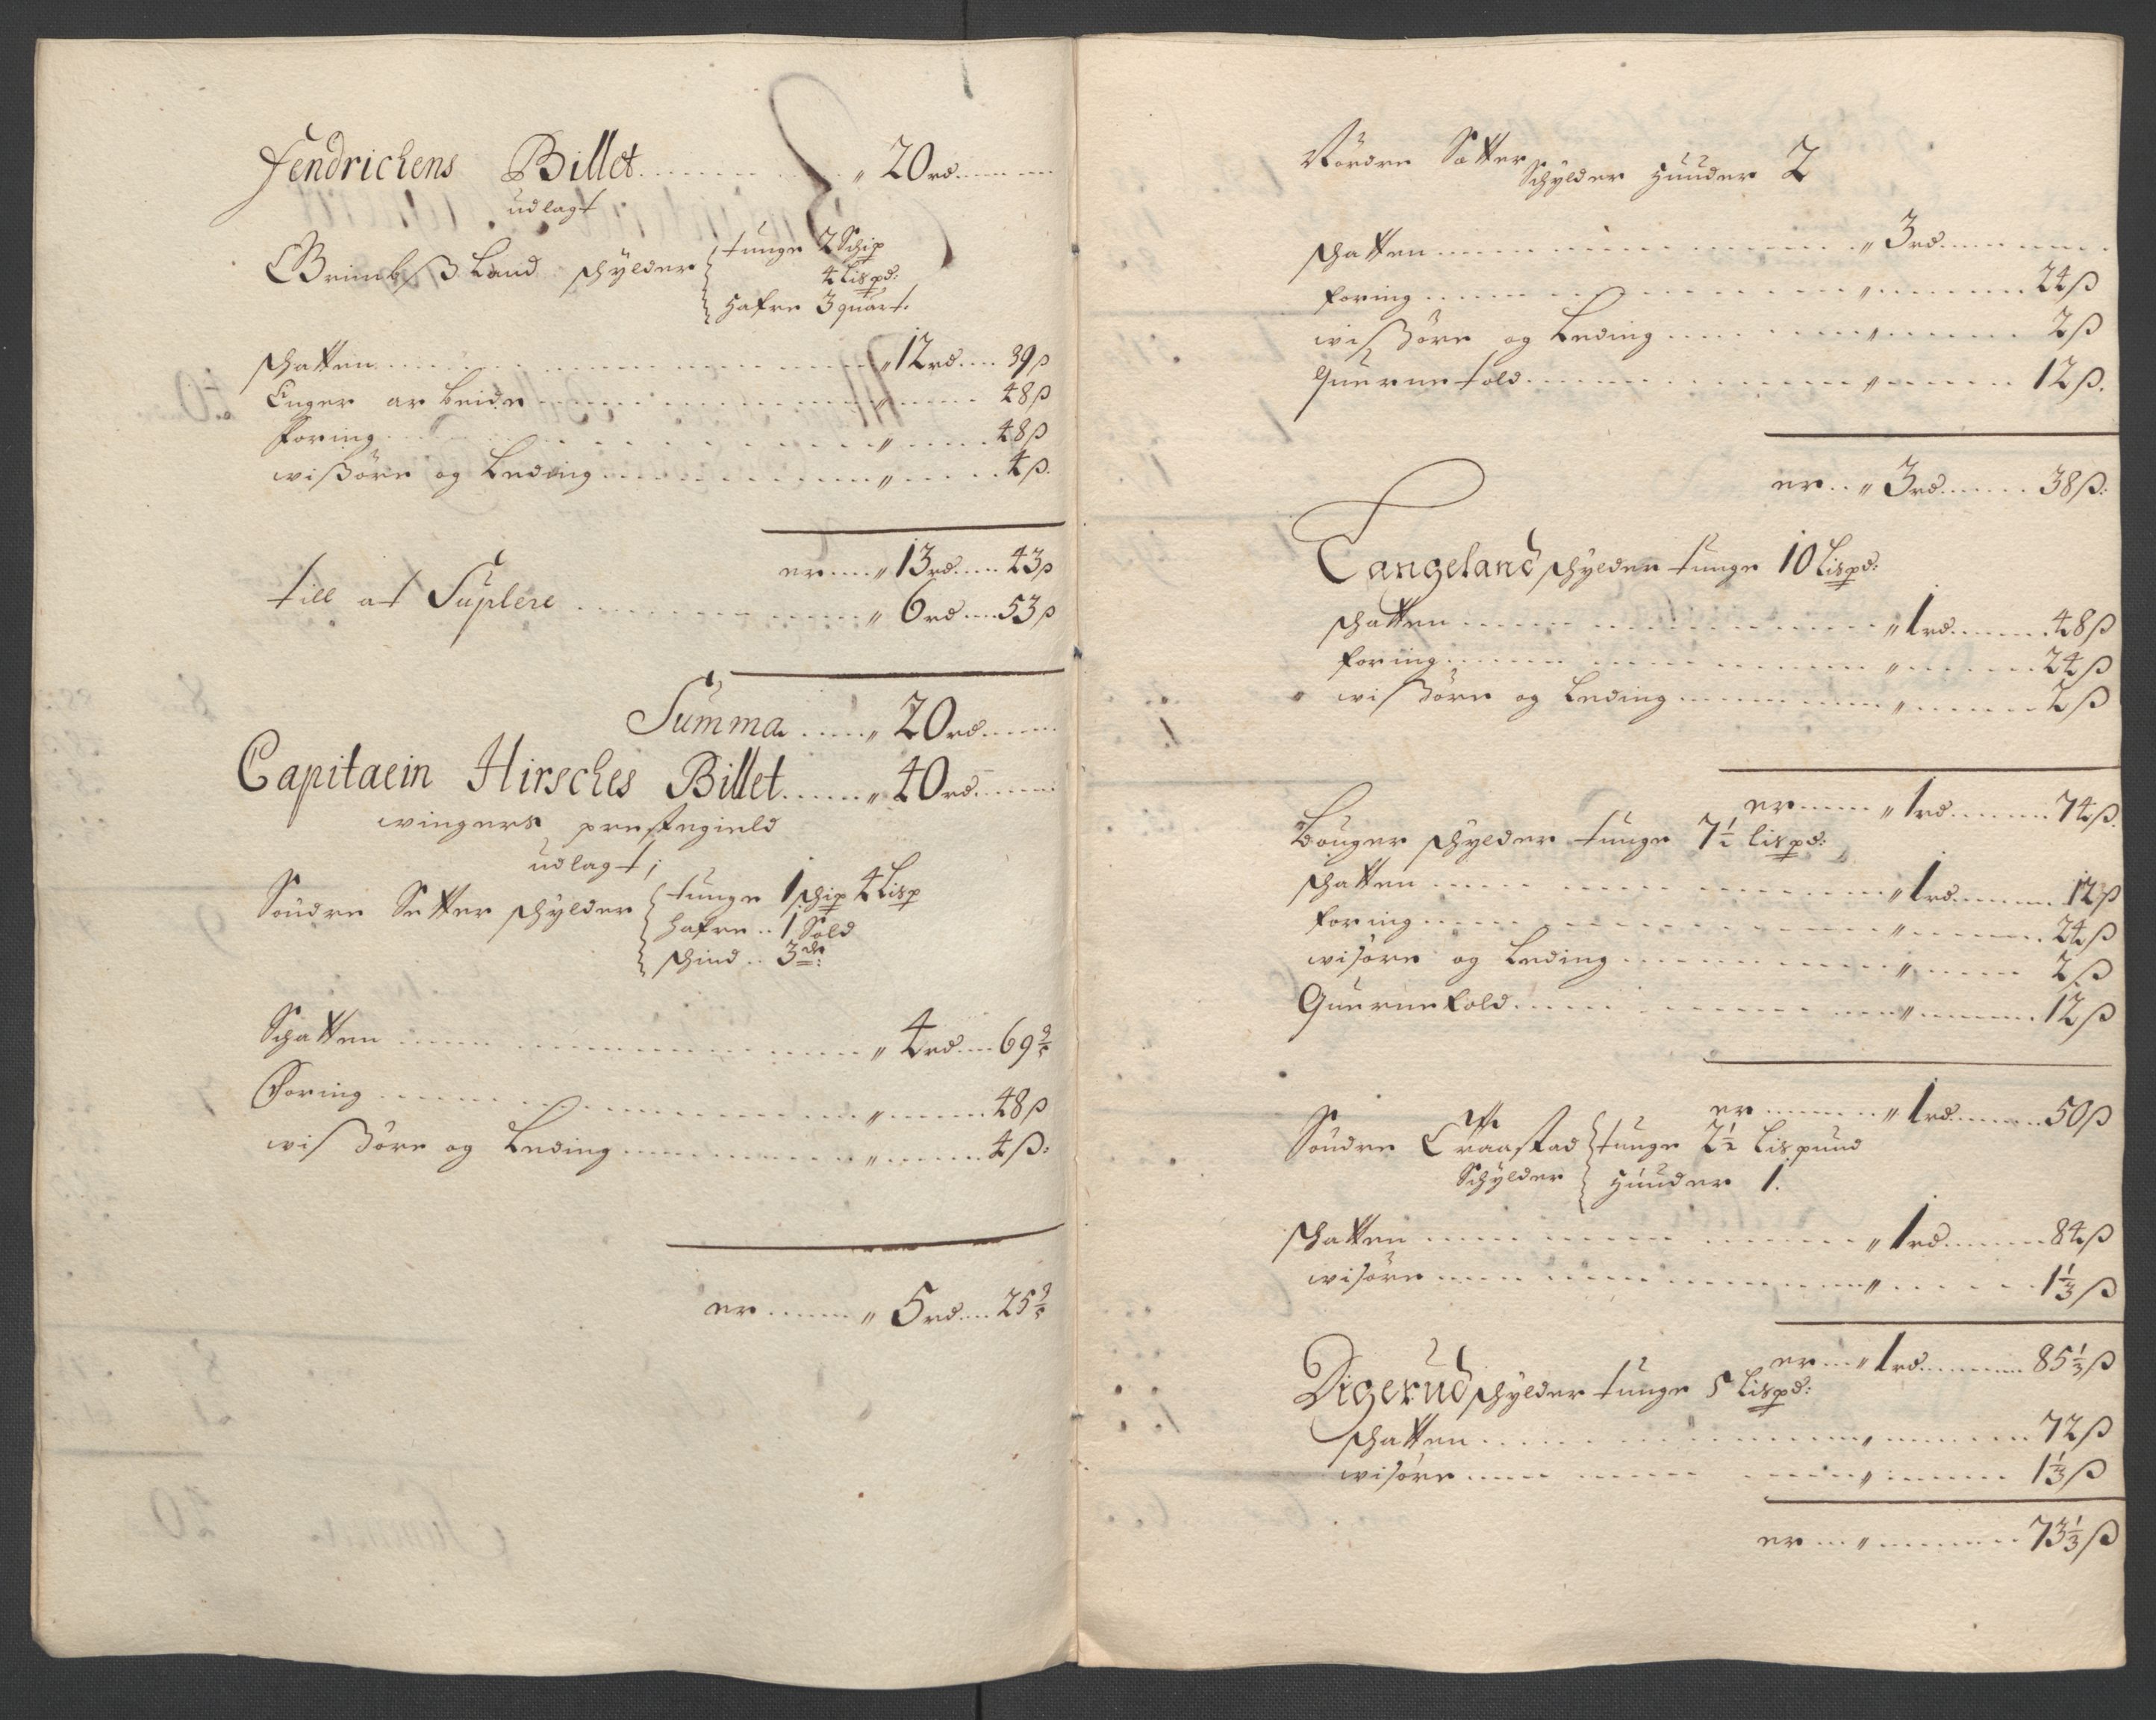 Fendrichens Billet ........ " 20 rd ....
udlagt
Grimbßland schylder tunge 2 Schip
4 Lispd:
Hafre 3 quart.
schatten ........ " 12 rd ... 39 ß
Enger arbeide ........ " ... 48 ß
foring ........ " ... 48 ß
wißöre og Leding ........ " ... 4 ß.
er .... " 13 rd .... 43 ß
till at Suplere ........ " 6 rd ... 53 ß
Summa ..... " 20 rd .....
Capitaein Hirsches Billet ...... " 40 rd .....
wingers prestegield
udlagt;
Söndre Setter schylder tunge 1 schip 4 Lisp
hafre .. 1 Sold
schind .. 3
Schatten ........ " 4 rd ... 69 2/5
Foring ........ " ... 48 ß
wißöre og Leding ........ " ... 4 ß:
er ...... " 5 rd ... 25 2/5
Nordre Setter
Schylder Huuder 2
schatten ........ " 3 rd ......
foring ........ " ... 24 ß
wißöre og Leding ........ " ... 2 ß
Querne told ........ " ... 12 ß.
er .. " 3 rd ...... 38 ß:
Tangeland schylder tunge 10 Lispd:
schatten ........ " 1 rd ..... 48 ß
foring ........ " ... 24 ß
" wißöre og Leding ........ " ... 2 ß
er ..... " 1 rd ..... 74 ß.
Bouger schylder tunge 7 1/2 lispd:
schatten ........ " 1 rd ..... 12 ß
foring ........ " ... 24 ß
wisöre og Leding ........ " ... 2 ß
Querne told ........ " ... 12 ß
er ...... " 1 rd ..... 50 ß
Söndre Craastad tunge 2 1/2 Lispund
Schylder Huuder 1.
schatten ........ " 1 rd ..... 84 ß
wisöre ........ " ... 1 1/3 ß
er ... " 1 rd ..... 85 1/3 ß
Digerud schylder tunge 5 Lispd:
schatten ........ " ... 72 ß
wisöre ........ " ... 1 1/3 ß
er ... " ...... 73 1/3 ß